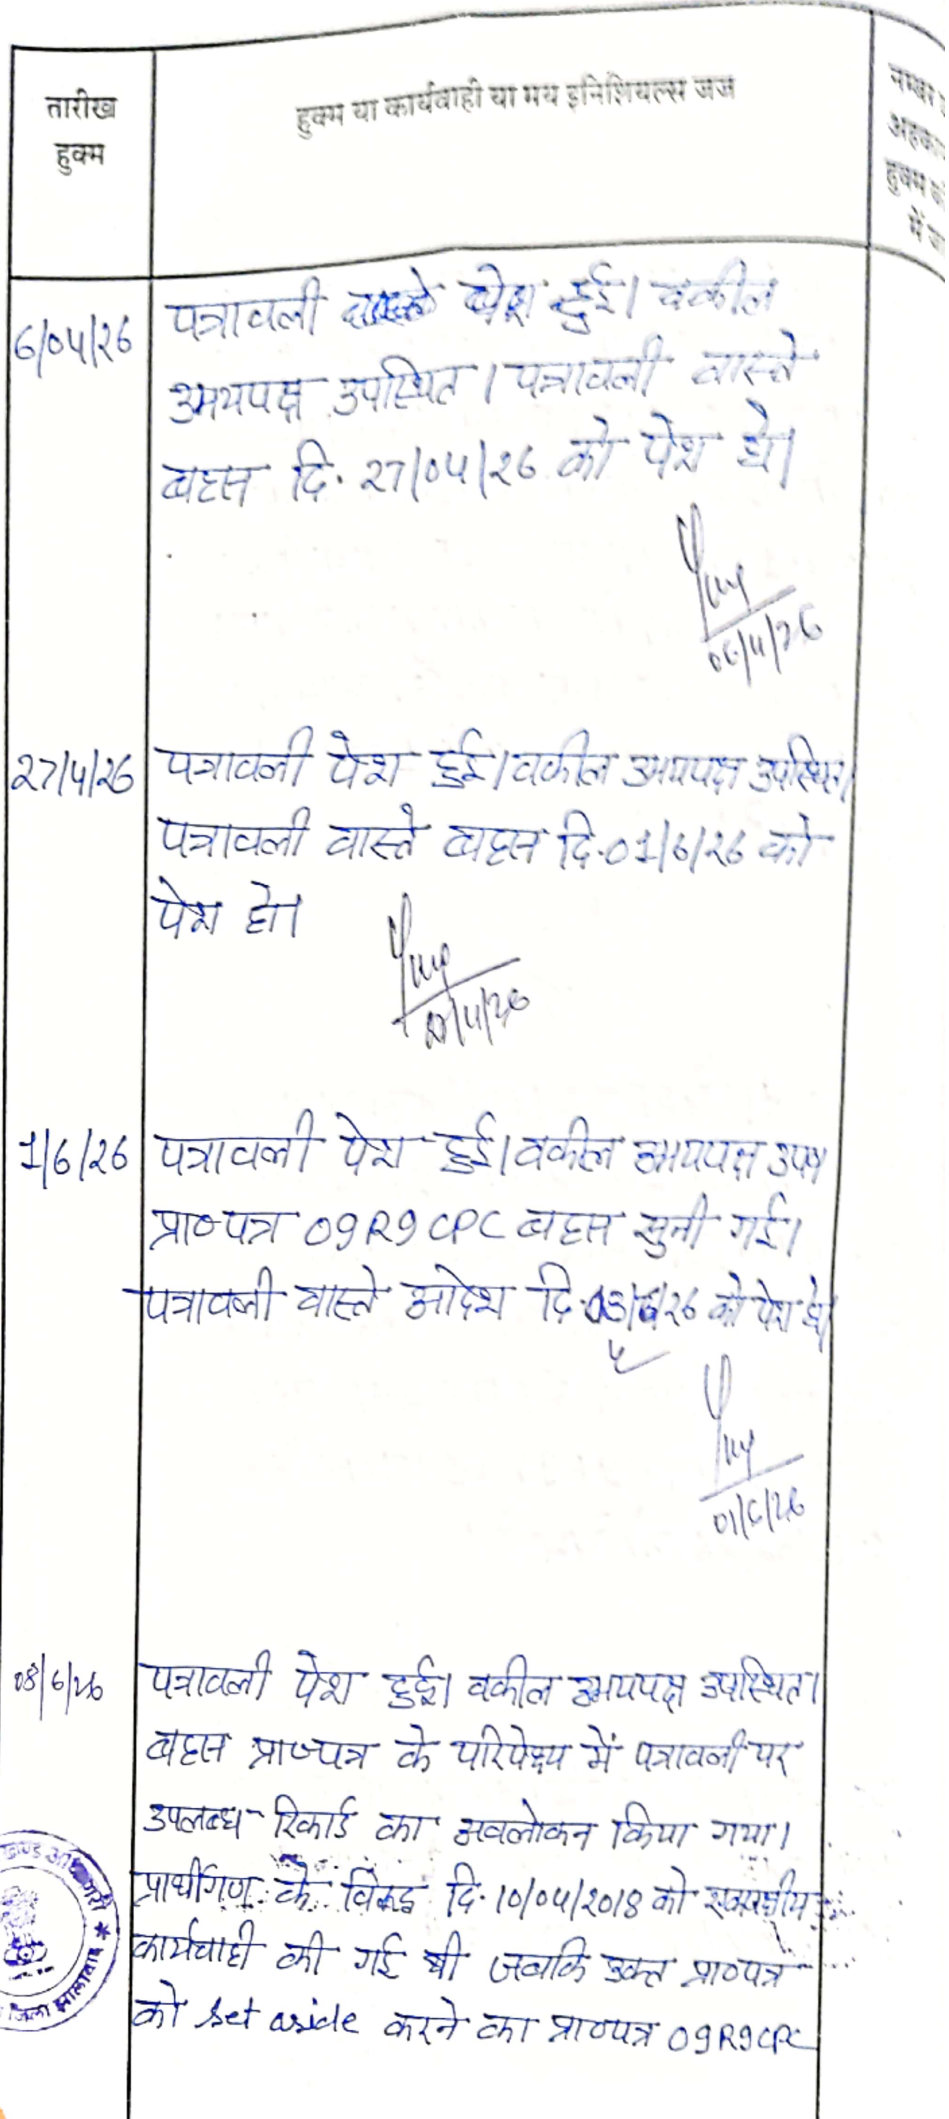 तारीख
हुक्म
हुक्म या कार्यवाही या मय इनिशियल्स जज
नम्बर
हुक्म
में
6/04/26
पत्रावली पेश हुई। वकील
उभयपक्ष उपस्थित। पत्रावली वास्ते
बहस दि. 27/04/26 को पेश हो।
06/4/26
27/4/26
पत्रावली पेश हुई। वकील उभयपक्ष उपस्थित।
पत्रावली वास्ते बहस दि. 01/6/26 को
पेश हो।
27/4/26
1/6/26
पत्रावली पेश हुई। वकील उभयपक्ष उप०
प्रा०पत्र 09R9 CPC बहस सुनी गई।
पत्रावली वास्ते आदेश दि. /26 को पेश हो।
01/6/26
08/6/26
पत्रावली पेश हुई। वकील उभयपक्ष उपस्थित।
बहस प्रा०पत्र के परिपेक्ष्य में पत्रावली पर
उपलब्ध रिकार्ड का अवलोकन किया गया।
प्रार्थीगण के विरूद्ध दि. 10/04/2018 को एकपक्षीय
कार्यवाही की गई थी जबकि उक्त प्रा०पत्र
को set aside करने का प्रा०पत्र 09R9CPC
जिला झालावाड़